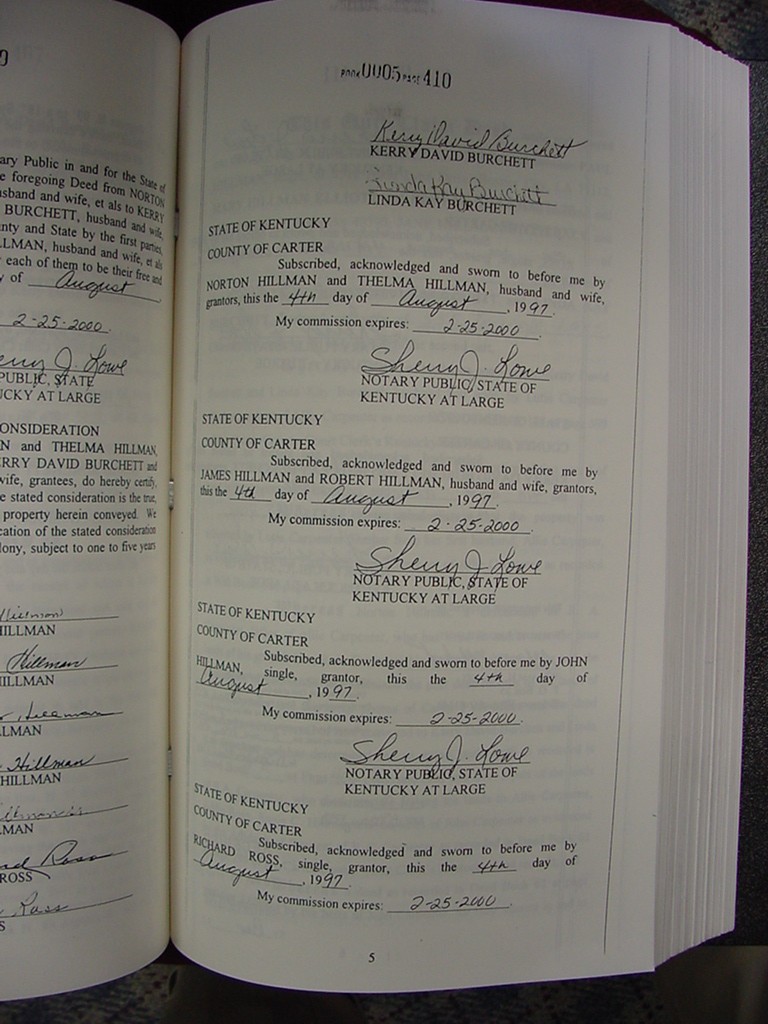 ary Public in and for the State of
e foregoing Deed from NORTON
usband and wife, et als to KERRY
BURCHETT, husband and wife,
nty and State by the first parties,
LLMAN, husband and wife, et als
each of them to be their free and
y of August
2-25-2000.
erry J. Lowe
PUBLIC, STATE
UCKY AT LARGE
ONSIDERATION
N and THELMA HILLMAN,
ERRY DAVID BURCHETT and
wife, grantees, do hereby certify,
e stated consideration is the true,
property herein conveyed. We
cation of the stated consideration
lony, subject to one to five years
Hillman
HILLMAN
Hillman
ILLMAN
LLMAN
Hillman
HILLMAN
MAN
Ross
ROSS
Ross
S
BOOK 0005 PAGE 410
Kerry David Burchett
KERRY DAVID BURCHETT
Linda Kay Burchett
LINDA KAY BURCHETT
STATE OF KENTUCKY
COUNTY OF CARTER
Subscribed, acknowledged and sworn to before me by
NORTON HILLMAN and THELMA HILLMAN, husband and wife,
grantors, this the 4th day of August, 1997.
My commission expires: 2-25-2000.
Sherry J. Lowe
NOTARY PUBLIC, STATE OF
KENTUCKY AT LARGE
STATE OF KENTUCKY
COUNTY OF CARTER
Subscribed, acknowledged and sworn to before me by
JAMES HILLMAN and ROBERT HILLMAN, husband and wife, grantors,
this the 4th day of August, 1997.
My commission expires: 2-25-2000.
Sherry J. Lowe
NOTARY PUBLIC, STATE OF
KENTUCKY AT LARGE
STATE OF KENTUCKY
COUNTY OF CARTER
Subscribed, acknowledged and sworn to before me by JOHN
HILLMAN, single, grantor, this the 4th day of
August, 1997.
My commission expires: 2-25-2000.
Sherry J. Lowe
NOTARY PUBLIC, STATE OF
KENTUCKY AT LARGE
STATE OF KENTUCKY
COUNTY OF CARTER
Subscribed, acknowledged and sworn to before me by
RICHARD ROSS, single, grantor, this the 4th day of
August, 1997.
My commission expires: 2-25-2000.
5